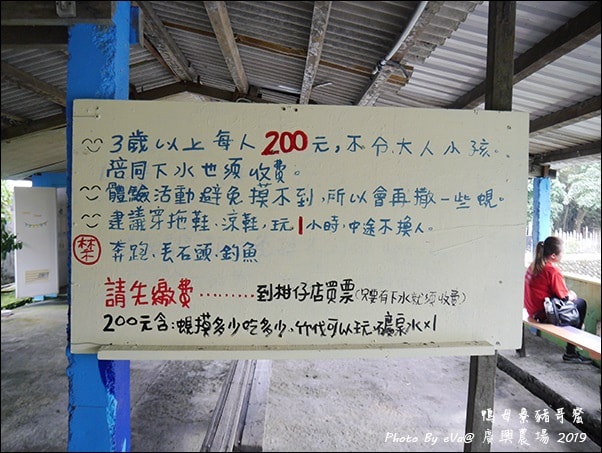 3歲以上每人200元，不分大人小孩。
陪同下水也須收費。
體驗活動避免摸不到，所以會再撒一些蜆。
建議穿拖鞋、涼鞋，玩1小時，中途不換人。
禁 奔跑、丟石頭、釣魚
請先繳費………到柑仔店買票(只要有下水就須收費)
200元含：蜆摸多少吃多少、竹筏可以玩、礦泉水×1
鴨母寮豬哥窩
Photo By eVa@ 廣興農場 2019